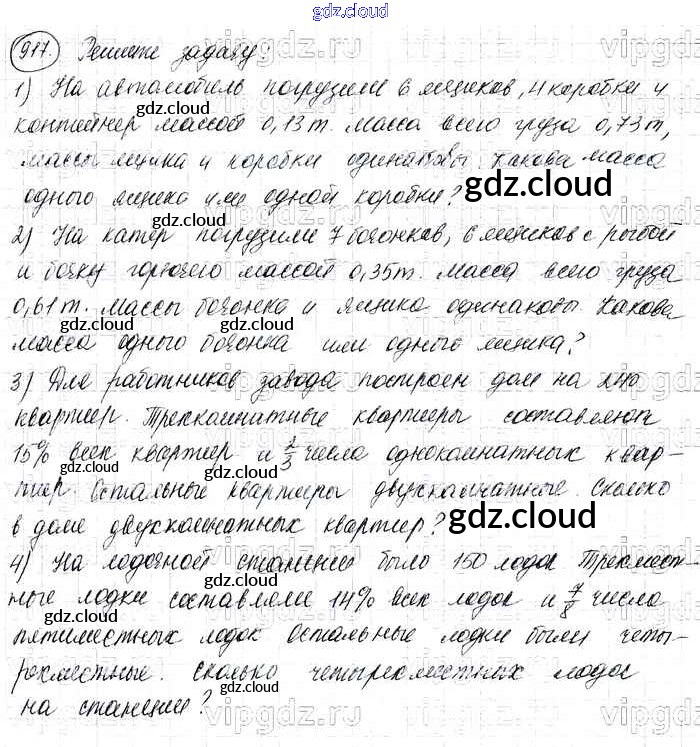 gdz.cloud
917. Решите задачу:
1) На автомобиль погрузили 6 ящиков, 4 коробки и
контейнер массой 0,13 т. Масса всего груза 0,73 т,
массы ящика и коробки одинаковы. Какова масса
одного ящика или одной коробки?
2) На катер погрузили 7 бочонков, 6 ящиков с рыбой
и бочку горючего массой 0,35 т. Масса всего груза
0,61 т. Массы бочонка и ящика одинаковы. Какова
масса одного бочонка или одного ящика?
3) Для работников завода построен дом на
квартир. Трехкомнатные квартиры составляют
15% всех квартир и 2/3 числа однокомнатных квар-
тир. Остальные квартиры двухкомнатные. Сколько
в доме двухкомнатных квартир?
4) На лодочной станции было 150 лодок. Трехмест-
ные лодки составляли 14% всех лодок и 7/8 числа
пятиместных лодок. Остальные лодки были четы-
рехместные. Сколько четырехместных лодок
на станции?